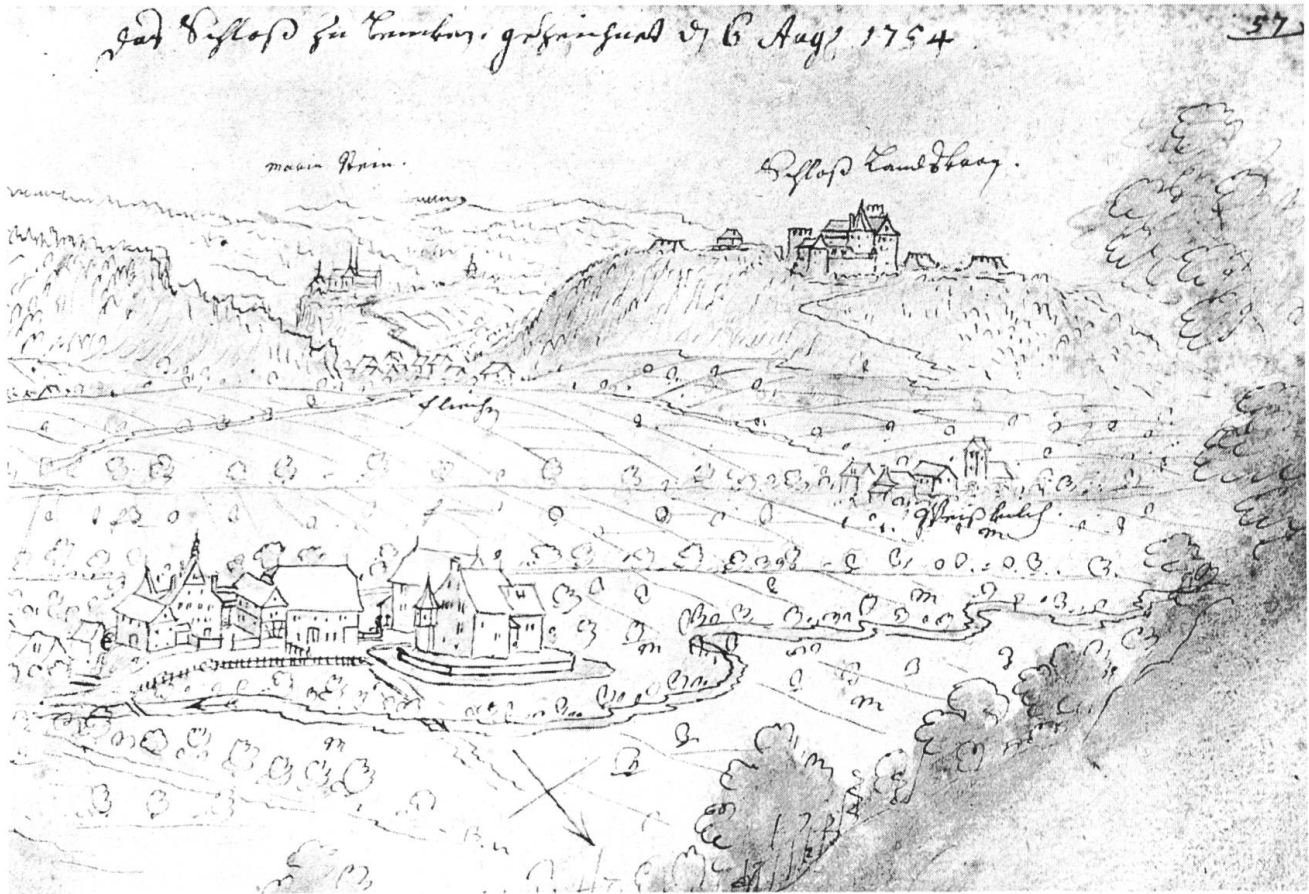 das Schloß zu Bencken. gezeichnet d 6 Aug 1754
57
maria Stein.
Schloß Landskron.
fliehn
Weißkilch